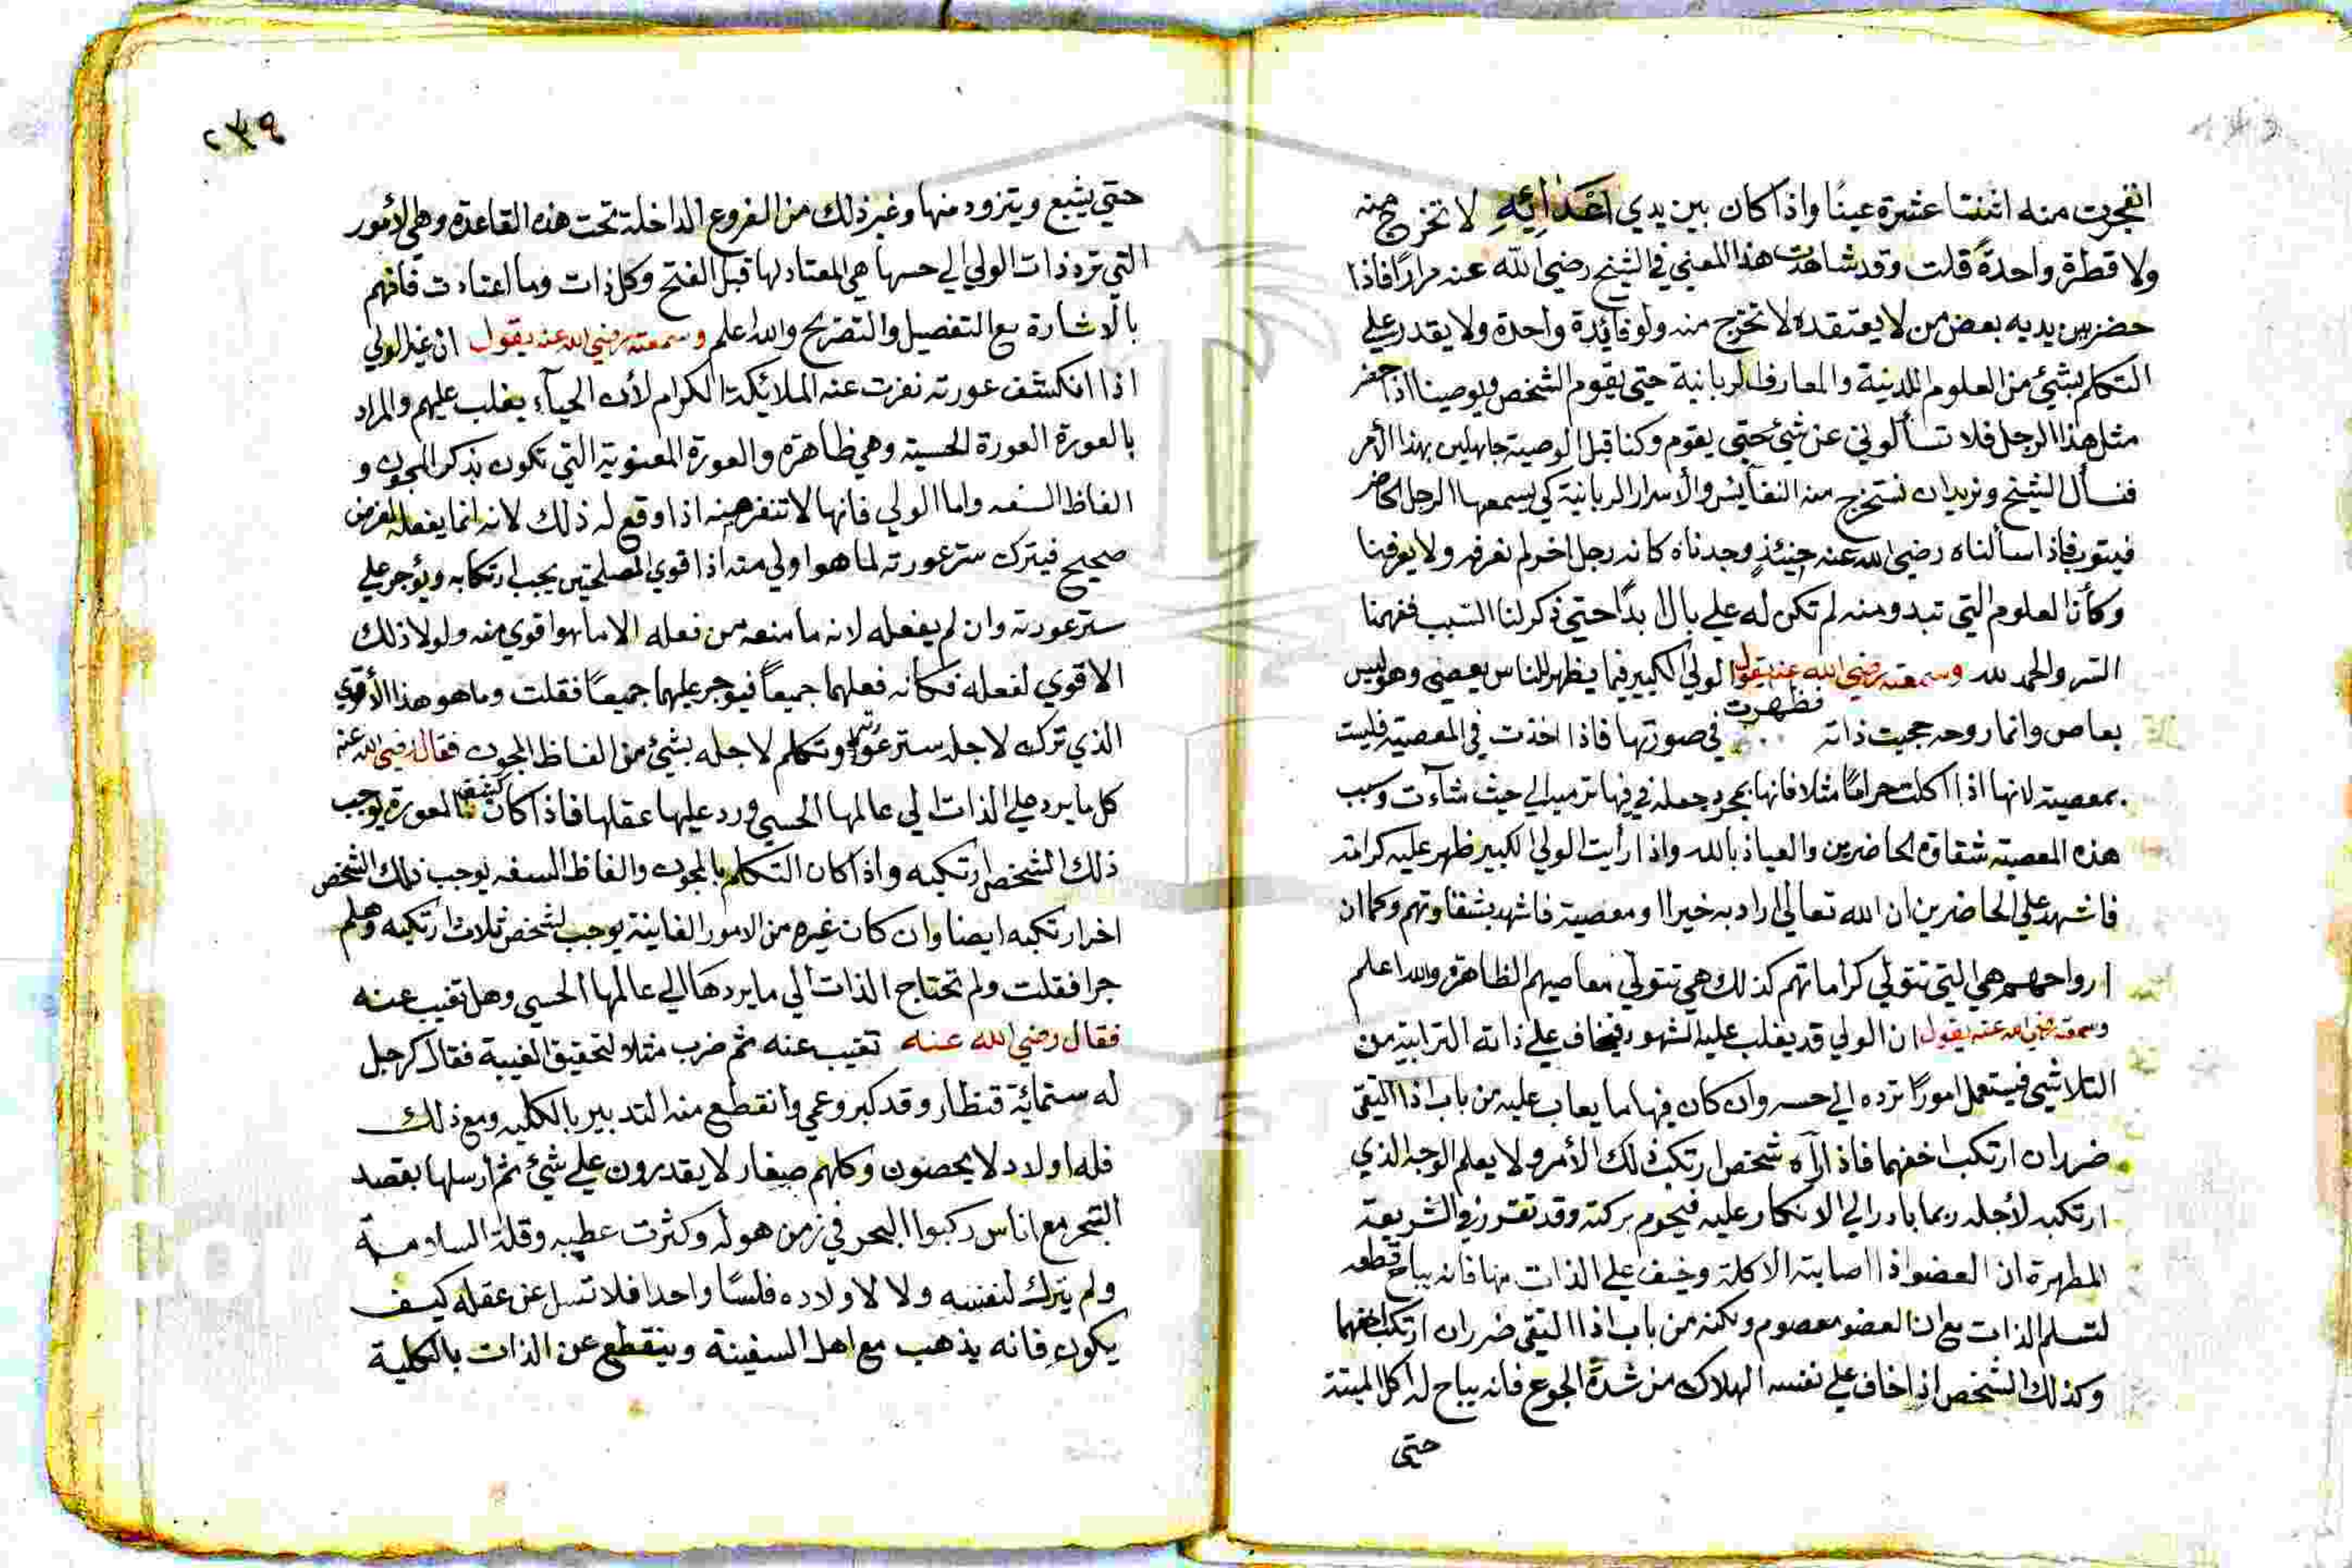 انفجرت منه اثنتا عشرة عينًا واذا كان بين يدي اعْدَائِهِ لا تخرج منه
ولا قطرة واحدةً قلت وقد شاهدت هذا المعني في الشيخ رضي الله عنه مرارًا فاذا
حضر بين يديه بعض من لا يعتقده لا تخرج منه ولو فائدة واحدة ولا يقدر علي
التكلم بشئ من العلوم اللدنية والمعارف الربانية حتي يقوم الشخص ويوصينا اذا حضر
مثل هذا الرجل فلا تسألوني عن شئ حتي يقوم وكنا قبل الوصية جاهلين بهذا الأمر
فنسأل الشيخ ونريد ان نستخرج منه النفآئس والأسرار الربانية كي يسمعها الرجل الحاضر
فيتوب فاذا سألناه رضي الله عنه حينئذٍ وجدناه كانه رجل اخر لم نعرفه ولا يعرفنا
وكأن العلوم التي تبدو منه لم تكن له علي بال ابدًا حتي ذكر لنا السبب ففهمنا
السر والحمد لله وسمعته رضي الله عنه يقول الولي الكبير فيما يظهر للناس يعصي وهو ليس
بعاص وانما روحه حجبت ذاته فظهرت في صورتها فاذا اخذت في المعصية فليست
بمعصية لانها اذا اكلت حرامًا مثلا فانها بمجرد جعله في فيها ترميه الي حيث شآءت وسبب
هذه المعصية شقاوة الحاضرين والعياذ بالله واذا رأيت الولي الكبير ظهر عليه كرامة
فاشهد علي الحاضرين ان الله تعالي اراد به خيرا او معصية فاشهد بشقاوتهم وكما ان
ارواحهم هي التي تتولي كراماتهم كذلك هي تتولي معاصيهم الظاهرة والله اعلم
وسمعته رضي الله عنه يقول ان الولي قد يغلب عليه الشهود فيخاف علي ذاته الترابية من
التلاشي فيستعمل امورًا ترده الي حسه وان كان فيها ما يعاب عليه من باب اذا التقي
ضرران ارتكب اخفهما فاذا رآه شخص ارتكب ذلك الأمر ولا يعلم الوجه الذي
ارتكبه لأجله ربما بادر الي الانكار عليه فيحرم بركته وقد تقرر في الشريعة
المطهرة ان العضو اذا اصابته الاكلة وخيف علي الذات منها فانه يباح قطعه
لتسلم الذات مع ان العضو معصوم ولكنه من باب اذا التقي ضرران ارتكب اخفهما
وكذلك الشخص اذا خاف علي نفسه الهلاك من شدة الجوع فانه يباح له اكل الميتة
حتى
٢٣٩
حتي يشبع ويتزود منها وغير ذلك من الفروع الداخلة تحت هذه القاعدة وهي الأمور
التي ترد ذات الولي الي حسها هي المعتاد لها قبل الفتح وكل ذات وما اعتادت فافهم
بالاشارة مع التفصيل والتصريح والله اعلم وسمعته رضي الله عنه يقول ان غير الولي
اذا انكشف عورته نفرت عنه الملائكة الكرام لأن الحيآء يغلب عليهم والمراد
بالعورة العورة الحسية وهي ظاهرة والعورة المعنوية التي تكون بذكر المجون و
الفاظ السفه واما الولي فانها لا تنفر منه اذا وقع له ذلك لانه انما يفعله لغرض
صحيح فيترك ستر عورته لما هو اولي منه اذا قوي المصلحتين يجب ارتكابه ويؤجر علي
ستر عورته وان لم يفعله لانه ما منعه من فعله الا ما هو اقوي منه ولولا ذلك
الاقوي لفعله فكانه فعلهما جميعاً فيوجر عليهما جميعًا فقلت وما هو هذا الأقوي
الذي ترك لاجله ستر عورته وتكلم لاجله بشئ من الفاظ المجون فقال رضي الله عنه
كل ما يرد علي الذات الي عالمها الحسي ورد عليها عقلها فاذا كان كشف العورة يوجب
ذلك الشخص ارتكبه واذا كان التكلم بالمجون والفاظ السفه يوجب ذلك الشخص
اخر ارتكبه ايضا وان كان غيره من الامور الفانية يوجب لشخص ثلاث ارتكبه وهلم
جرا فقلت ولم تحتاج الذات الي ما يردها الي عالمها الحسي وهل تغيب عنه
فقال رضي الله عنه تغيب عنه ثم ضرب مثلا لتحقيق الغيبة فقال كرجل
له ستمائة قنطار وقد كبر وعمي وانقطع منه التدبير بالكلية ومع ذلك
فله اولاد لا يحصون وكلهم صغار لا يقدرون علي شئ ثم ارسلها بقصد
التجر مع اناس ركبوا البحر في زمن هوله وكثرت عطبه وقلة السلامة
ولم يترك لنفسه ولا لاولاده فلسًا واحدا فلا تسل عن عقله كيف
يكون فانه يذهب مع اهل السفينة وينقطع عن الذات بالكلية